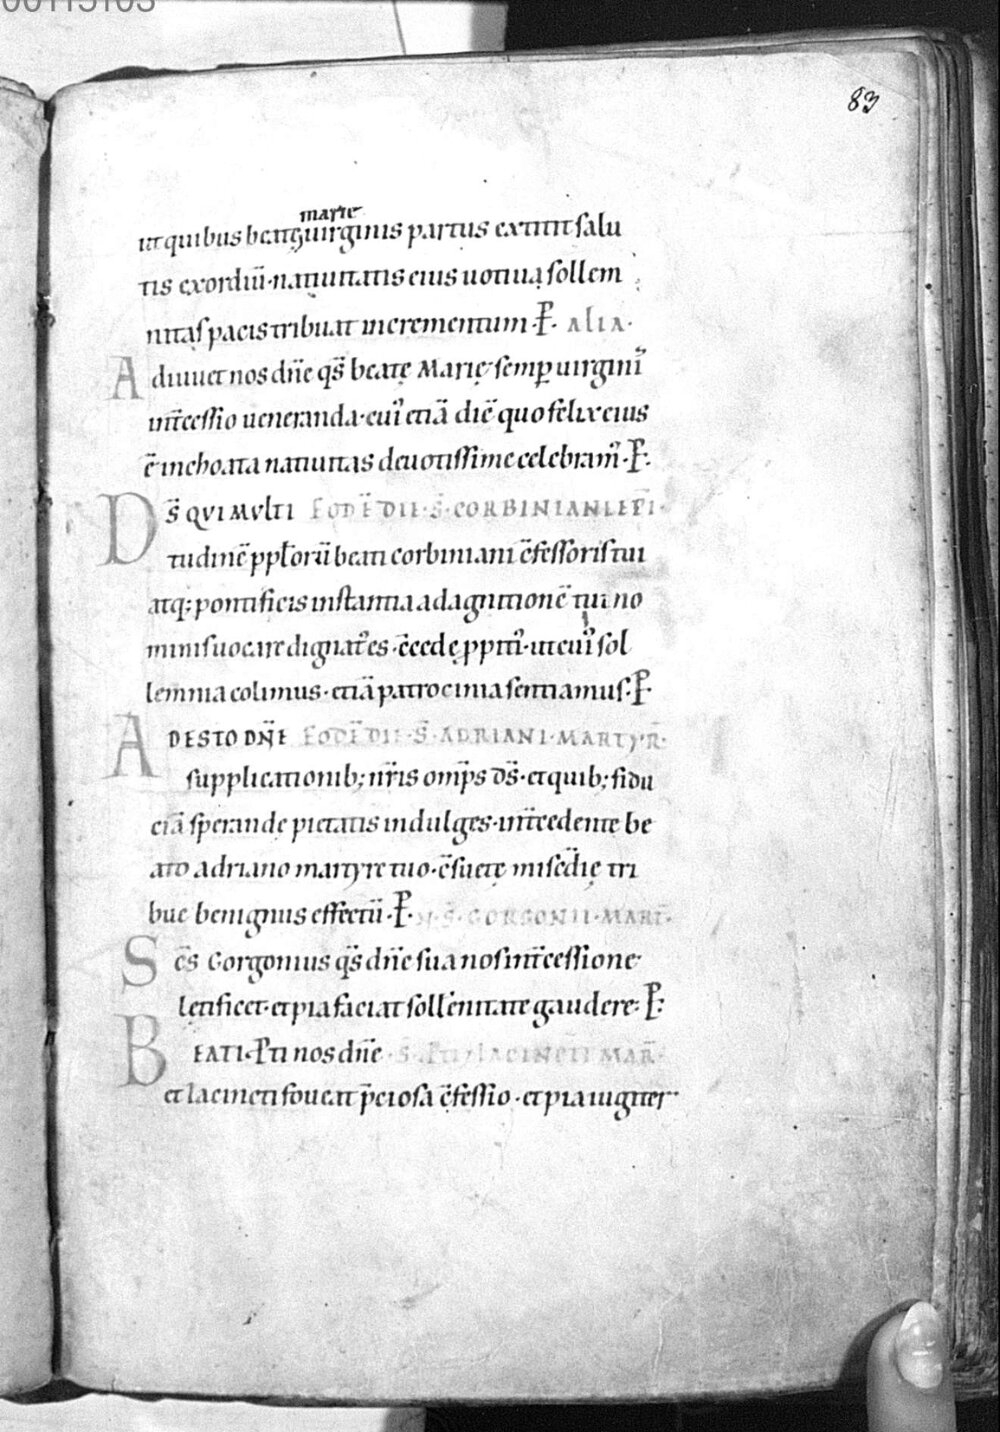 00115103
83
marie
ut quibus beatę uirginis partus extitit salu
tis exordiū·natiuitatis eius uotiua sollem
nitas pacis tribuat incrementum·P̄· ALIA·
Adiuuet nos dn̄e qs̄ beatę Marię semꝑ uirgini᷒
int̄cessio ueneranda·cui᷒ etiā diē quo felix eius
ē inchoata natiuitas deuotissime celebram᷒·P̄·
DS̄ QVI MVLTI EODĒ DIE·S̄·CORBINIANI·EP̄I·
tudinē ppl̄orū beati corbiniani c̄fessoris tui
atq; pontificis instantia ad agnitionē tui no
minis uocare dignat᷒ es·c̄cede ꝓpiti᷒·ut cui᷒ sol
lemnia colimus·etiā patrocinia sentiamus·P̄·
ADESTO DN̄E EODĒ DIE·S̄·ADRIANI·MARTYR̄·
supplicationib; nr̄is omp̄s ds̄·et quib; fidu
ciā sperandę pietatis indulges·int̄cedente be
ato adriano martyre tuo·c̄suetę mis̄cdię tri
bue benignus effectū·P̄· S̄·GORGONII·MART̄·
Sc̄s Gorgonius qs̄ dn̄e sua nos int̄cessione
lętificet·et pia faciat sollēnitate gaudere·P̄·
BEATI·P̄ti nos dn̄e·S̄·P̄TI·IACINCTI MAR̄·
et Iacincti foueat p̄ciosa c̄fessio·et pia iugiter